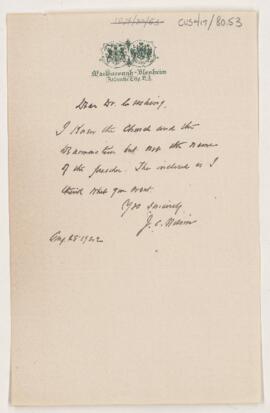 CUS4/17/80.53
Marlborough-Blenheim
Atlantic City, N.J.
Dear Dr. Cushing,
I know the Church and the
but not the name
of the preacher. The inclosed is I
think what you want.
Yrs sincerely
J. C.
Aug 25 1922